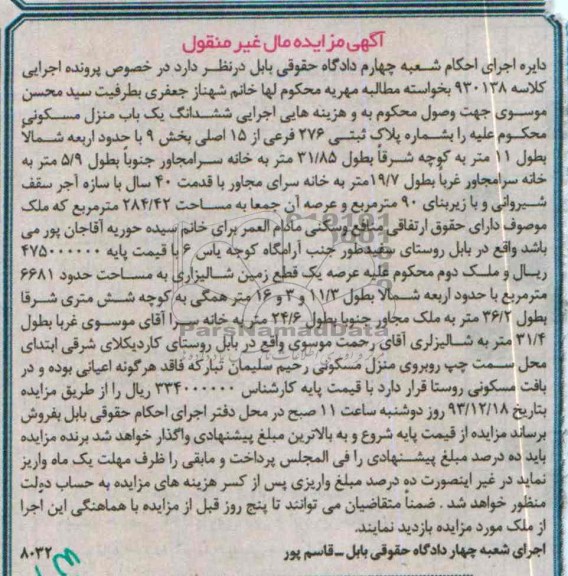 آگهی مزایده مال غیر منقول
دایره اجرای احکام شعبه چهارم دادگاه حقوقی بابل درنظر دارد در خصوص پرونده اجرایی
کلاسه ۹۳۰۱۳۸ بخواسته مطالبه مهریه محکوم لها خانم شهناز جعفری بطرفیت سید محسن
موسوی جهت وصول محکوم به و هزینه هایی اجرایی ششدانگ یک باب منزل مسکونی
محکوم علیه را بشماره پلاک ثبتی ۲۷۶ فرعی از ۱۵ اصلی بخش ۹ با حدود اربعه شمالاً
بطول ۱۱ متر به کوچه شرقاً بطول ۳۱/۸۵ متر به خانه سرامجاور جنوباً بطول ۵/۹ متر به
خانه سرامجاور غرباً بطول ۱۹/۷متر به خانه سرای مجاور با قدمت ۴۰ سال با سازه آجر سقف
شیروانی و با زیربنای ۹۰ مترمربع و عرصه آن جمعا به مساحت ۲۸۴/۴۲ مترمربع که ملک
موصوف دارای حقوق ارتفاقی منافع وسکنی مادام العمر برای خانم سیده حوریه آقاجان پور می
باشد واقع در بابل روستای سفیدطور جنب آرامگاه کوچه یاس ۶ با قیمت پایه ۴۷۵۰۰۰۰۰۰
ریال و ملک دوم محکوم علیه عرصه یک قطع زمین شالیزاری به مساحت حدود ۶۶۸۱
مترمربع با حدود اربعه شمالا بطول ۱۱/۳ و ۳ و ۱۶ متر همگی به کوچه شش متری شرقا
بطول ۳۶/۲ متر به ملک مجاور جنوبا بطول ۲۴/۶ متر به خانه سرا آقای موسوی غربا بطول
۳۱/۴ متر به شالیزلری آقای رحمت موسوی واقع در بابل روستای کاردیکلای شرقی ابتدای
محل سمت چپ روبروی منزل مسکونی رحیم سلیمان تبارکه فاقد هرگونه اعیانی بوده و در
بافت مسکونی روستا قرار دارد با قیمت پایه کارشناس ۳۳۴۰۰۰۰۰۰ ریال را از طریق مزایده
بتاریخ ۹۳/۱۲/۱۸ روز دوشنبه ساعت ۱۱ صبح در محل دفتر اجرای احکام حقوقی بابل بفروش
برساند مزایده از قیمت پایه شروع و به بالاترین مبلغ پیشنهادی واگذار خواهد شد برنده مزایده
باید ده درصد مبلغ پیشنهادی را فی المجلس پرداخت و مابقی را ظرف مهلت یک ماه واریز
نماید در غیر اینصورت ده درصد مبلغ واریزی پس از کسر هزینه های مزایده به حساب دولت
منظور خواهد شد . ضمناً متقاضیان می توانند تا پنج روز قبل از مزایده با هماهنگی این اجرا
از ملک مورد مزایده بازدید نمایند.
اجرای شعبه چهار دادگاه حقوقی بابل - قاسم پور
۸۰۳۲
ParsNamadData